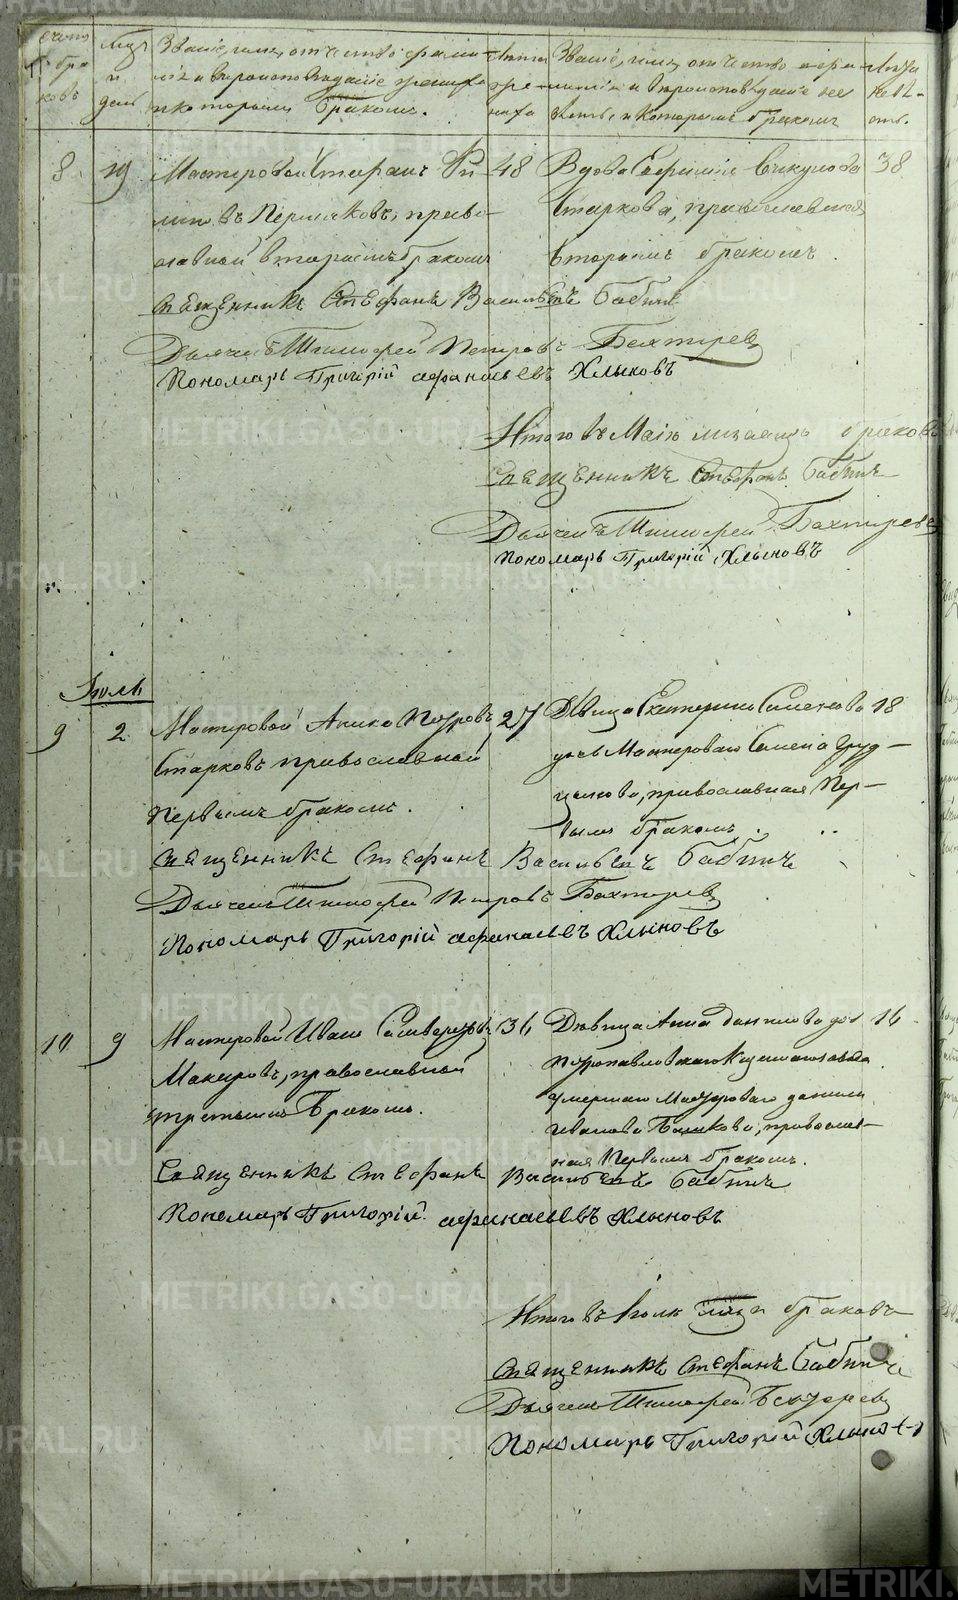 Счетъ браковъ
Мѣсяцъ и день
Званіе, имя, отчество, фамилія и вѣроисповѣданіе жениха и которымъ бракомъ.
Лѣта жениха
Званіе, имя, отчество и фамилія и вѣроисповѣданіе невѣсты, и которымъ бракомъ
Лѣта невѣсты.
8 19 Мастеровой 48 Вдова Евфимія Викулова 38
Пермяковъ, право- Старкова, православная
славной вторымъ бракомъ вторымъ бракомъ.
Священникъ Стефанъ Васильевъ Бабинъ
Дьячекъ Тимофей Петровъ Бехтерев
Пономарь Григорій Афанасьевъ Хлыновъ
Итого въ браковъ
Священникъ Стефанъ Бабинъ
Дьячекъ Тимофей Бахтиревъ
Пономарь Григорій Хлыновъ
Іюль
9 2 Мастеровой Аника Петровъ 27 Дѣвица Екатерина Семенова 18
Старковъ православной дочь Мастероваго Семена
первымъ бракомъ. православная пер-
вымъ бракомъ.
Священникъ Стефанъ Васильевъ Бабинъ
Дьячекъ Тимофей Петровъ Бахтерев
Пономарь Григорій Афанасьевъ Хлыновъ
10 9 Мастеровой Иванъ 36 Дѣвица Анна Данилова доч 16
Макаровъ, православной Петропавловскаго завода
третьимъ бракомъ. умершаго Мастероваго Данила
Иванова православ-
ная первымъ бракомъ.
Священникъ Стефанъ Васильевъ Бабинъ
Пономарь Григорій Афанасьевъ Хлыновъ
Итого въ Іюлѣ браковъ
Священникъ Стефанъ Бабинъ
Дьячекъ Тимофей Бехтерев
Пономарь Григорій Хлыновъ
METRIKI.GASO-URAL.RU